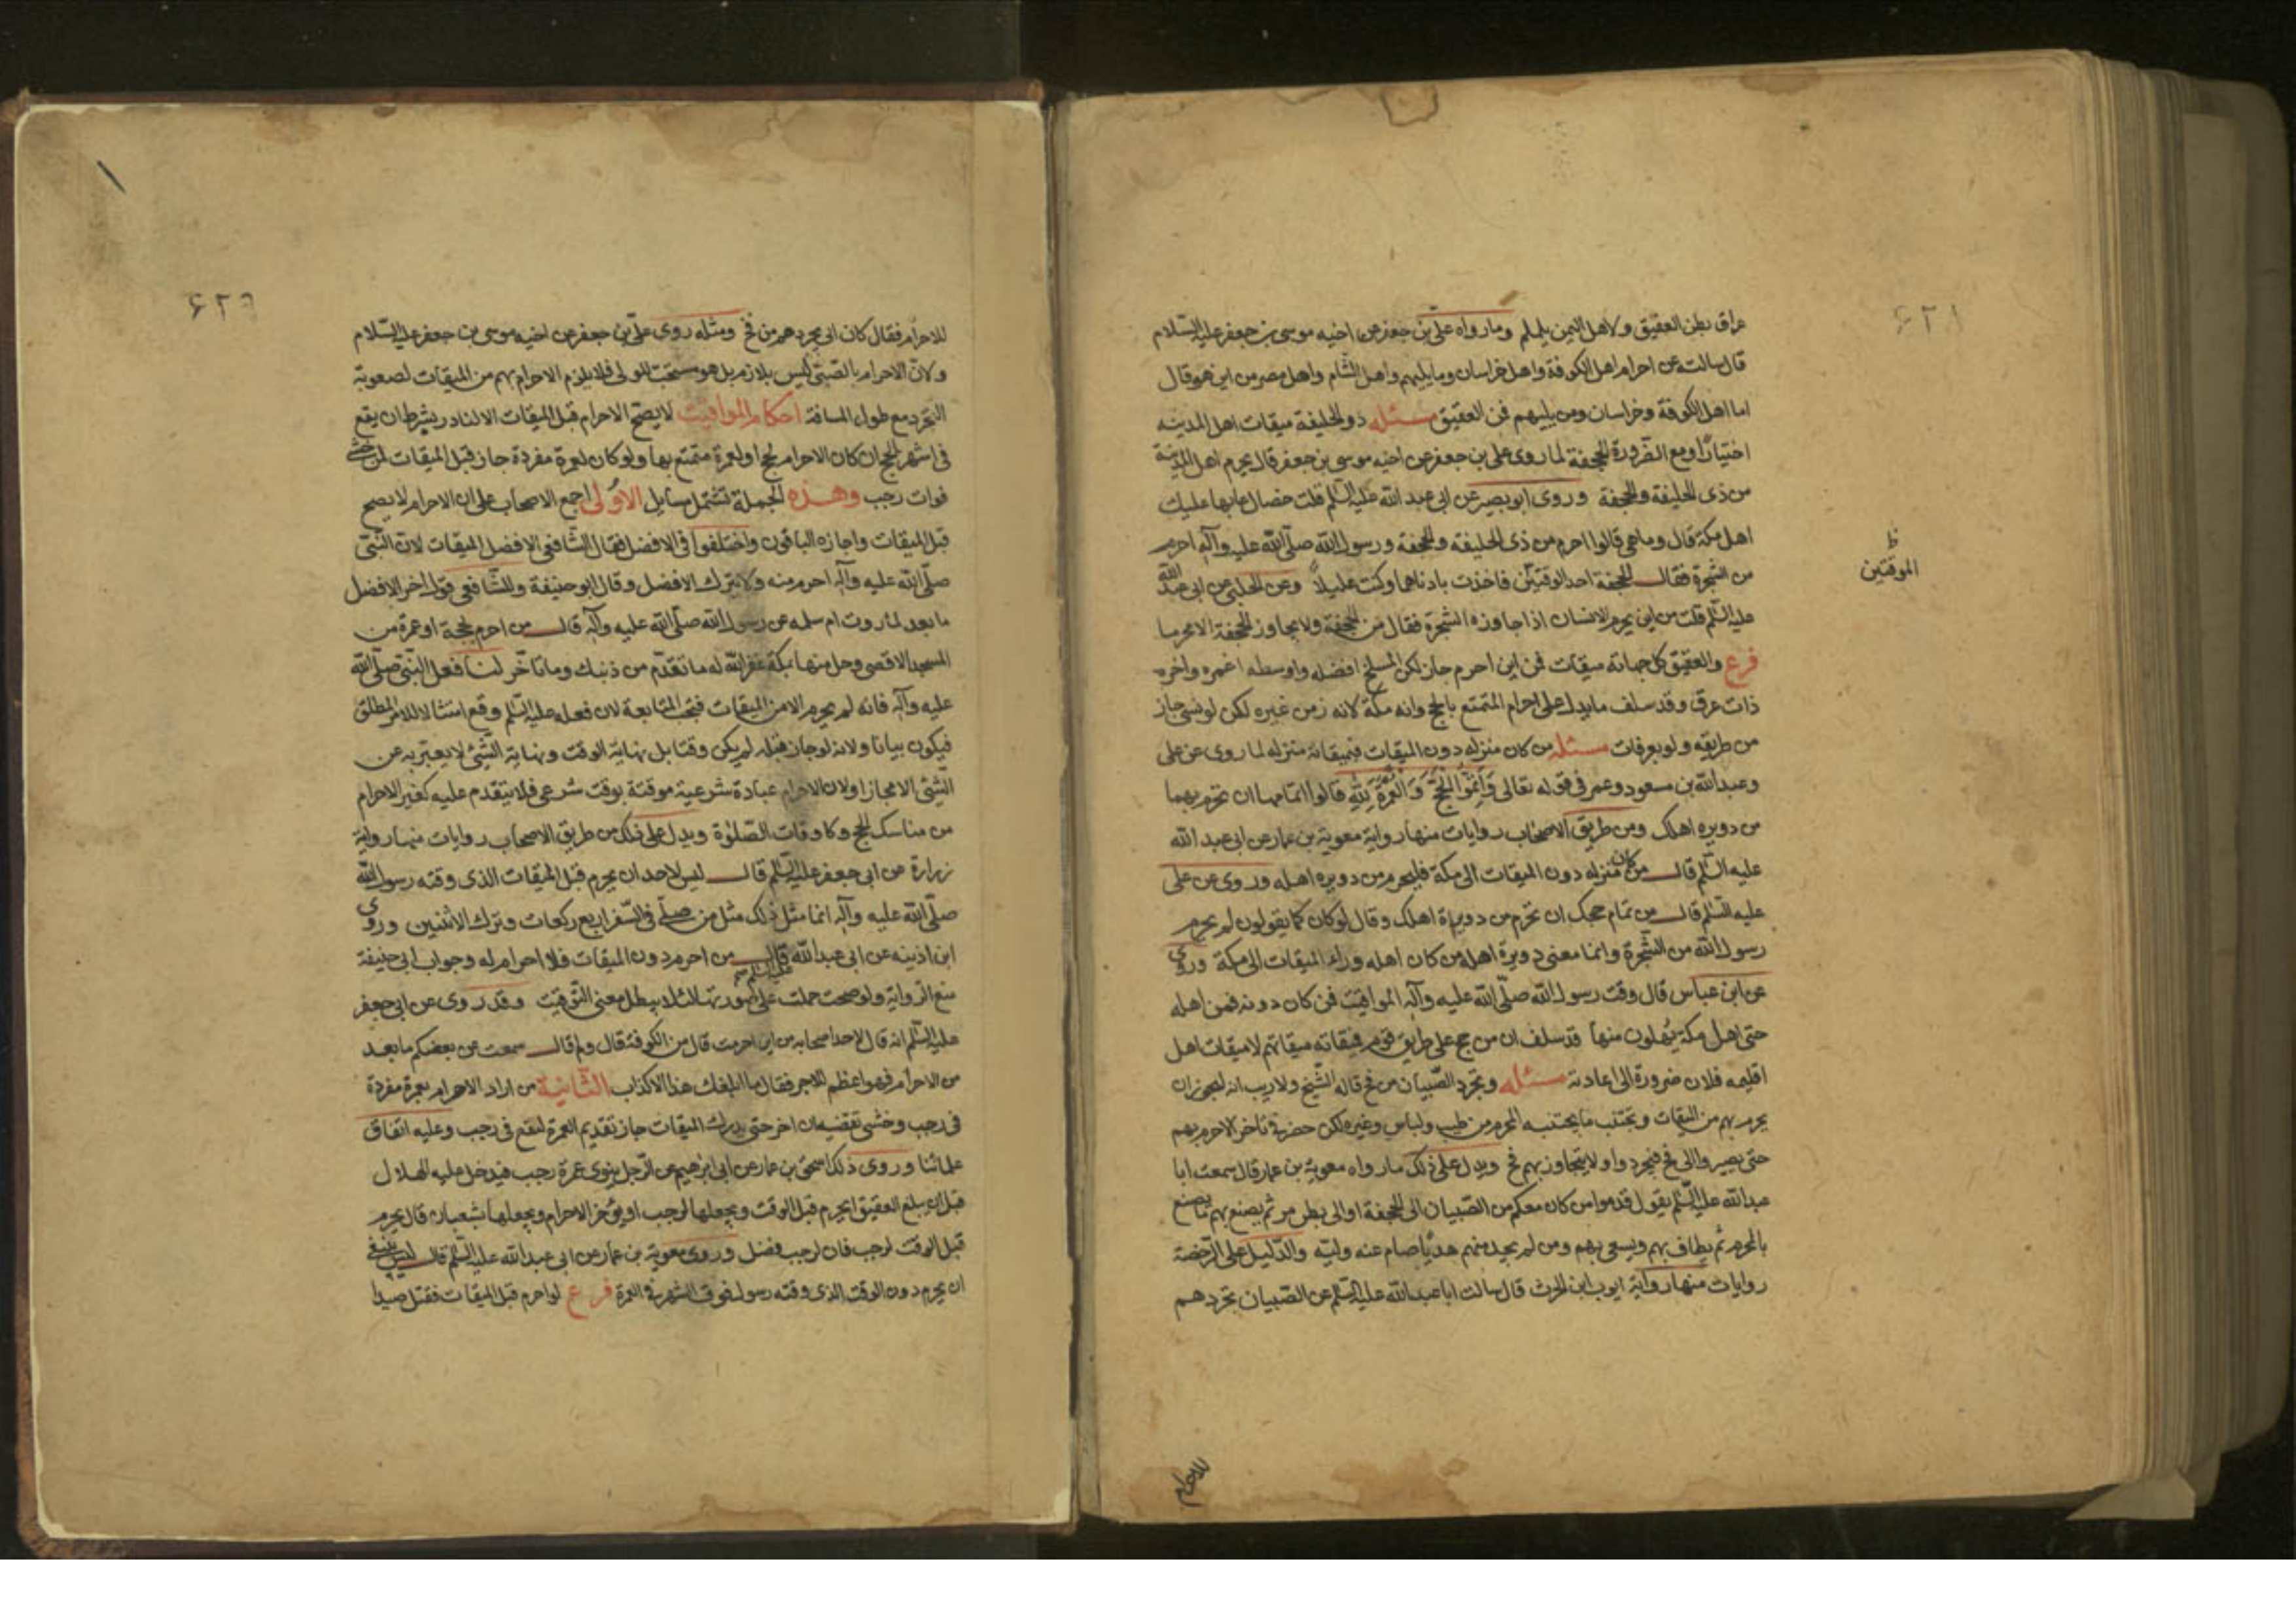 ۶۲۱
عراق بطن العقيق ولاهل اليمن يلملم وما رواه علی بن جعفر عن اخيه موسى بن جعفر عليه السّلام
قال سالت عن احرام اهل الكوفة واهل خراسان وما يليهم واهل الشام واهل مصر من اين هو قال
اما اهل الكوفة وخراسان ومن يليهم فمن العقيق مسئله ذو الحليفة ميقات اهل المدينه
اختيارًا ومع الضّرورة الجحفة لما روى علی بن جعفر عن اخيه موسى بن جعفر قال يحرم اهل المدينة
من ذى الحليفة والجحفة وروى ابو بصير عن ابى عبد الله عليه السّلم قلت خصال عابها عليك
اهل مكة قال وما هى قالوا احرم من ذى الحليفة والجحفة ورسول الله صلّى الله عليه وآله احرم
من الشجرة فقال الجحفة احد الوقتين فاخذت بادناهما وكنت عليلاً وعن الحلبى عن ابى عبد الله
ظ
الموقتين
عليه السّلم قلت من اين يحرم الانسان اذا جاوزه الشجرة فقال من الجحفة ولا يجاوز الجحفة الا محرما
فرع والعقيق كل جهاته ميقات فمن اين احرم جاز لكن المسلخ افضله واوسطه اغمره واخره
ذات عرق وقد سلف ما يدل على احرام المتمتع بالحج وانه مكة لانه زمن غيره لكن لو نسى جاز
من طريقه ولو بعرفات مسئله من كان منزله دون الميقات فميقاته منزله لما روى عن على
وعبد الله بن مسعود وعمر فى قوله تعالى وَاَتِمُّوا الْحَجَّ وَالْعُمْرَةَ لِلّٰهِ قالوا اتمامهما ان تحرم بهما
من دويره اهلك ومن طريق الاصحاب روايات منها رواية معوية بن عمار عن ابى عبد الله
عليه السّلم قال من كان منزله دون الميقات الى مكة فليحرم من دويره اهله وروى عن على
عليه السّلم قال من تمام حجك ان تحرم من دويرة اهلك وقال لو كان كما يقولون لم يحرم
رسول الله من الشّجرة وانما معنى دويرة اهله من كان اهله وراء الميقات الى مكة وروى
عن ابن عباس قال وقت رسول الله صلّى الله عليه وآله المواقيت فمن كان دونه فمن اهله
حتى اهل مكة يُهلون منها قد سلف ان من حج على طريق قوم فميقاته ميقاتهم لا ميقات اهل
اقليمه فلان ضرورة الى اعادته مسئله وتجرد الصّبيان من فخ قاله الشّيخ ولا ريب انه ان
يحرم بهم من الميقات ويجتنب ما يجتنبه المحرم من طيب ولباس وغيره لكن تاخر الاحرام بهم
حتى يصيروا الى فخ فيجردوا ولا يتجاوز بهم فخ ويدل على ذلك ما رواه معوية بن عمار قال سمعت ابا
عبد الله عليه السّلم يقول قدموا من كان معكم من الصّبيان الى الجحفة او الى بطن مر ثم يصنع بهم ما يصنع
بالمحرم ثم يطاف بهم ويسعى بهم ومن لم يجد منهم هديًا صام عنه وليّه والدّليل على الرّخصة
روايات منها رواية ايوب ابن الحرث قال سالت ابا عبد الله عليه السّلم عن الصّبيان تجردهم
للاحرام
۶۲۲
للاحرام فقال كان ابى يجردهم من فخ ومثله روى علىّ بن جعفر عن اخيه موسى بن جعفر عليه السّلام
ولانّ الاحرام بالصّبى ليس بلازم بل هو مستحب للولى فلا يلزم الاحرام بهم من الميقات لصعوبة
التجرد مع طول المسافة احكام المواقيت لا يصحّ الاحرام قبل الميقات الا لناذر بشرط ان يقع
فى اشهر الحج ان كان الاحرام لحج او لعمرة متمتع بها ولو كان لعمرة مفردة جاز قبل الميقات لمن خشى
فوات رجب وهذه الجملة تشتمل مسايل الاوُلى اجمع الاصحاب على ان الاحرام لا يصح
قبل الميقات واجازه الباقون واختلفوا فى الافضل فقال الشّافعى الافضل الميقات لانّ النّبىّ
صلّى الله عليه وآله احرم منه ولا يترك الافضل وقال ابو حنيفة والشّافعى قول اخر الافضل
ما بعد لما روت ام سلمه عن رسول الله صلّى الله عليه وآله قال من احرم بحجة او عمرة من
المسجد الاقصى وحل منها بمكة غفر الله له ما تقدّم من ذنبك وما تاخّر لنا فعل النّبىّ صلّى الله
عليه وآله فانه لم يحرم الا من الميقات فتجب المتابعة لان فعله عليه السّلم وقع امتثالا للامر المطلق
فيكون بيانا ولانه لو جاز قبله لم يكن وقتا بل نهاية الوقت ونهاية الشّئ لا يعبّر به عن
الشّئ الا مجازا ولان الاحرام عبادة شرعية موقتة بوقت شرعى فلا يتقدم عليه كغير الاحرام
من مناسك الحج وكاوقات الصّلوٰة ويدل على ذلك من طريق الاصحاب روايات منها رواية
زرارة عن ابى جعفر عليه السّلم قال ليس لاحد ان يحرم قبل الميقات الذى وقته رسول الله
صلّى الله عليه وآله انما مثل ذلك مثل من صلّى فى السّفر اربع ركعات وترك الاثنين وروى
ابن اذينه عن ابى عبد الله عليه السلم قال من احرم دون الميقات فلا احرام له وجواب ابى حنيفة
منع الرواية ولو صحت حملت على لئلا يبطل معنى التّوقيت وقد روى عن ابى جعفر
عليه السّلم انه قال لاحد اصحابه من اين احرمت قال من الكوفة قال ولم قال سمعت عن بعضكم ما بعد
من الاحرام فهو اعظم للاجر فقال ما ابلغك هذا الا كذاب الثّانية من اراد الاحرام بعمرة مفردة
فى رجب وخشى تقضيه ان اخر حتى يدرك الميقات جاز تقديم العمرة لتقع فى رجب وعليه اتفاق
علمائنا وروى ذلك اسحق بن عمار عن ابى ابراهيم عن الرّجل ينوى عمرة رجب فيدخل عليه الهلال
قبل ان يبلغ العقيق ايحرم قبل الوقت ويجعلها لرجب او يؤخر الاحرام ويجعلها لشعبان قال يحرم
قبل الوقت لرجب فان لرجب فضل وروى معوية بن عمار عن ابى عبد الله عليه السّلم قال ليس ينبغى
ان يحرم دون الوقت الذى وقته رسول فوت الشهر فى العمرة فرع لو احرم قبل الميقات فقتل صيدا